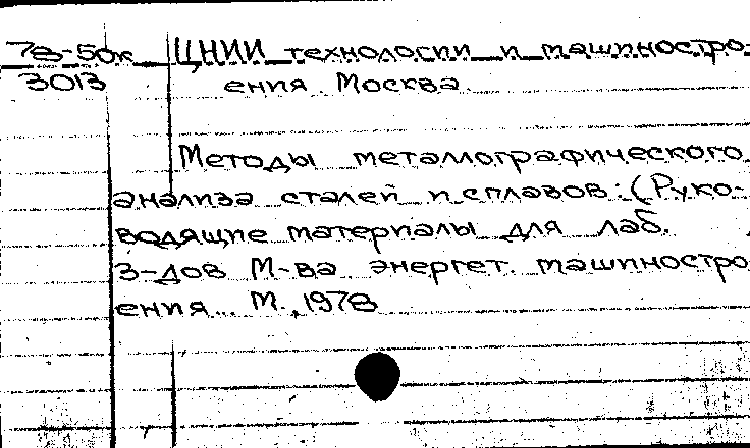 78-50к ЦНИИ технологии и машиностро
3013 ения. Москва.
Методы металлографического
анализа сталей и сплавов: (Руко-
водящие материалы для лаб.
з-дов М-ва энергет. машиностро
ения. М., 1978